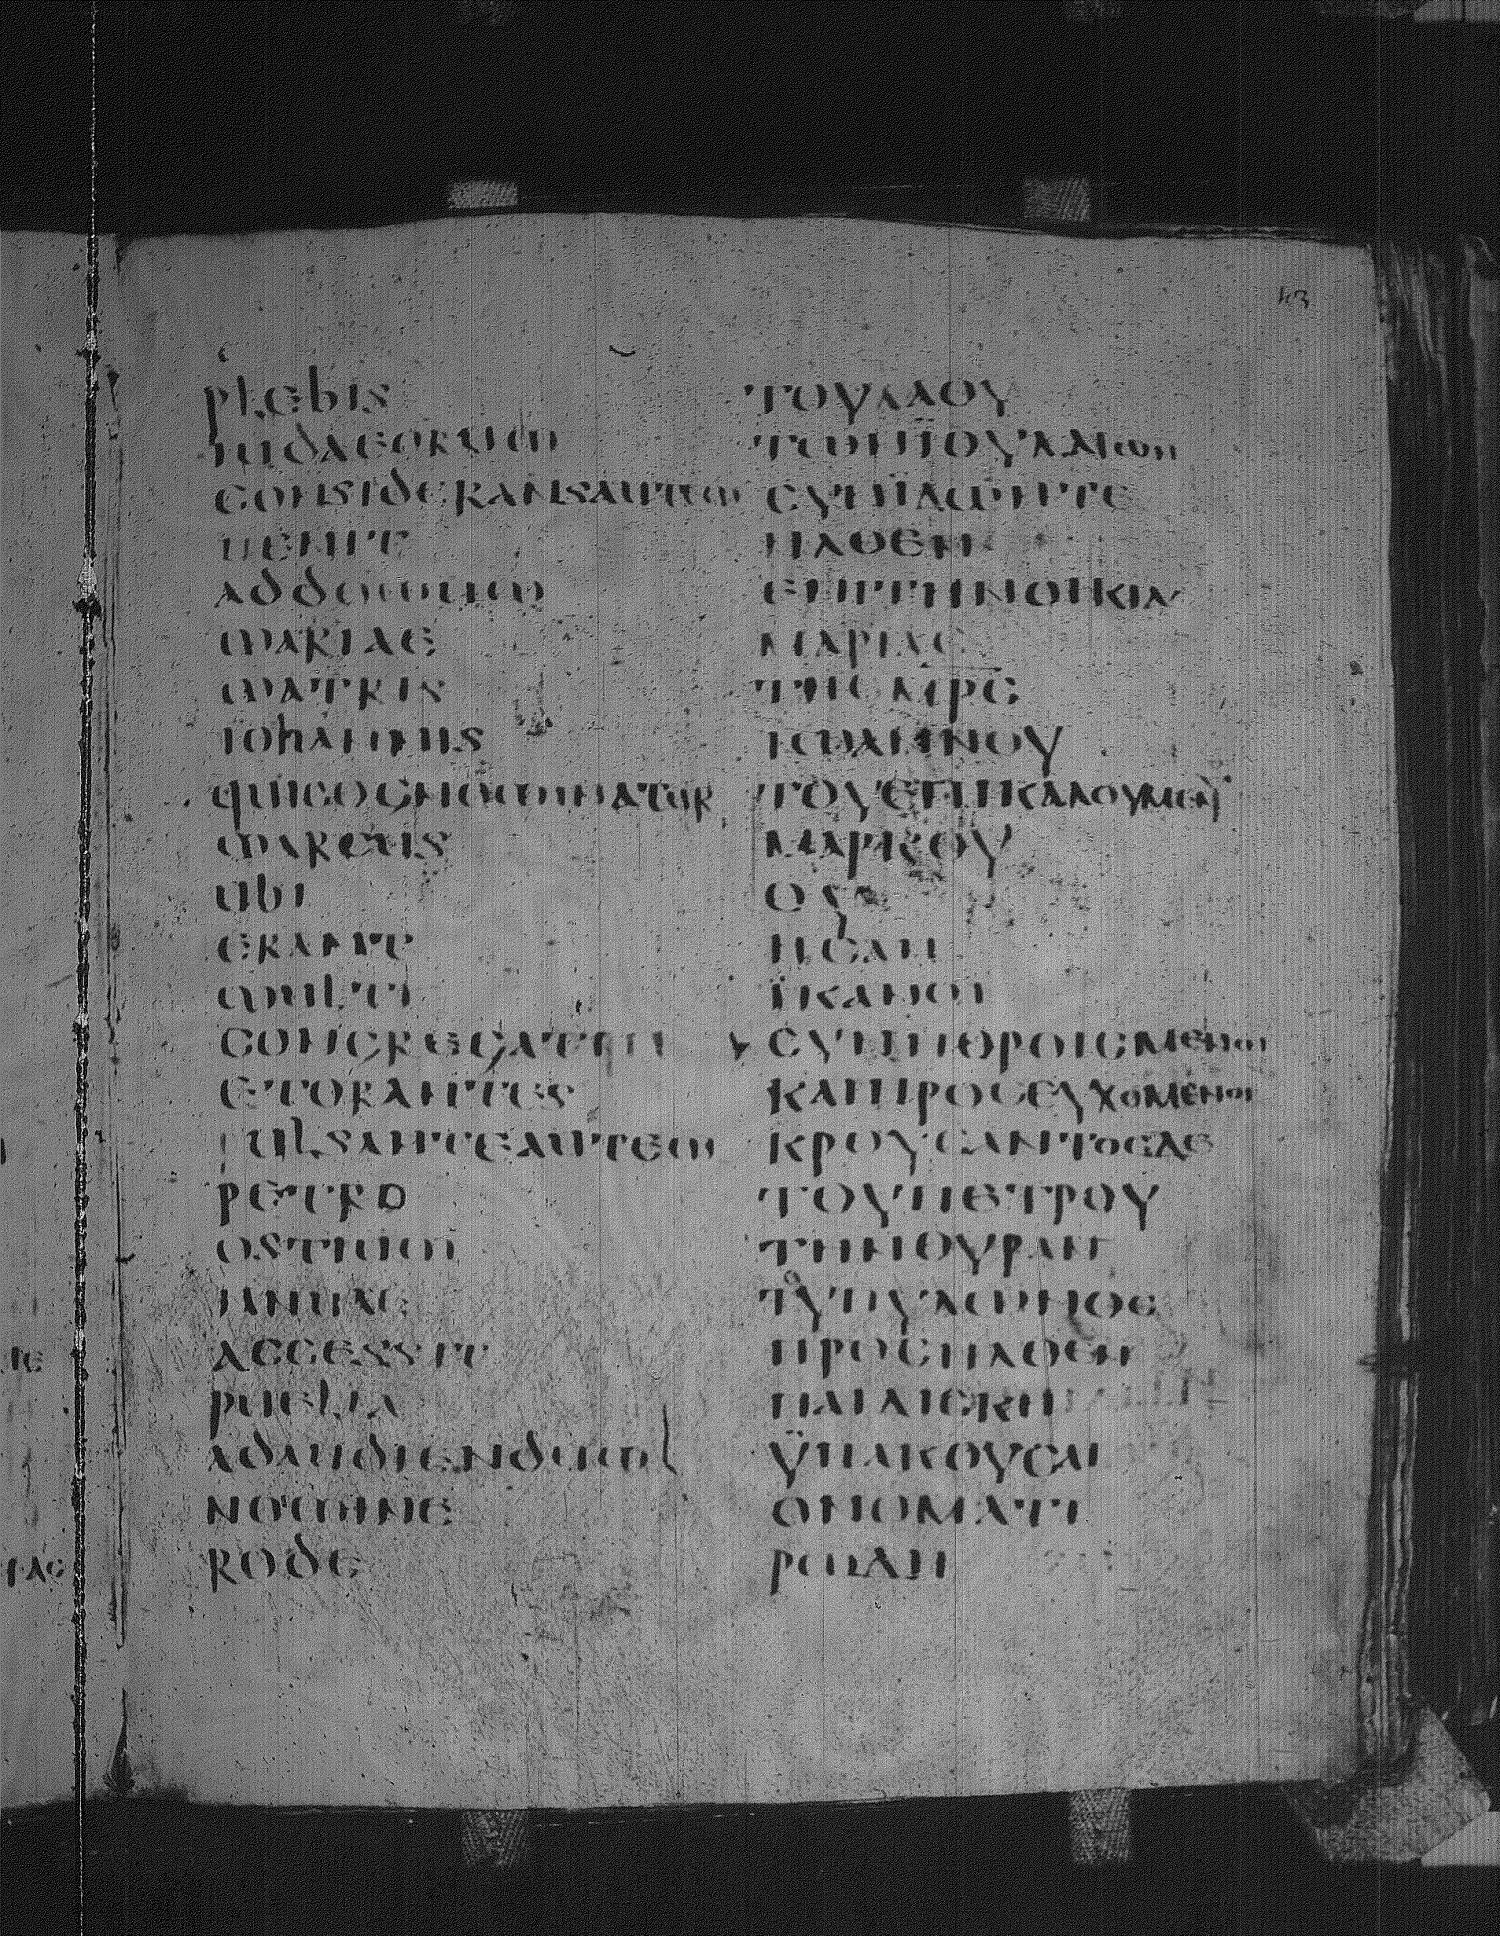 43
plebis
iudaeorum
consideransautem
uenit
addomum
mariae
matris
iohannis
quicognominatur
marcus
ubi
erant
multi
congregati
etorantes
pulsanteautem
petro
ostium
ianuae
accessit
puella
adaudiendum
nomine
rode
ΤΟΥΛΑΟΥ
ΤΩΝΪΟΥΔΑΙΩΝ
ϹΥΝΙΔΩΝΤΕ
ΗΛΘΕΝ
ΕΠΙΤΗΝΟΙΚΙΑΝ
ΜΑΡΙΑϹ
ΤΗϹΜΡϹ
ΙΩΑΝΝΟΥ
ΜΑΡΚΟΥ
ΟΥ
ΗϹΑΝ
ΪΚΑΝΟΙ
ϹΥΝΗΘΡΟΙϹΜΕΝΟΙ
ΚΑΙΠΡΟϹΕΥΧΟΜΕΝΟΙ
ΚΡΟΥϹΑΝΤΟϹΔΕ
ΤΟΥΠΕΤΡΟΥ
ΤΗΝΘΥΡΑΝ
ΤΟΥΠΥΛΩΝΟϹ
ΠΡΟϹΗΛΘΕΝ
ΠΑΙΔΙϹΚΗ
ΫΠΑΚΟΥϹΑΙ
ΟΝΟΜΑΤΙ
ΡΩΔΗ